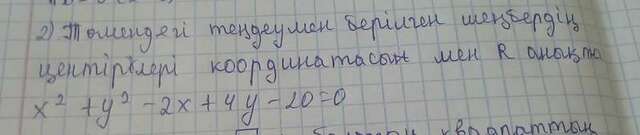 2) Төмендегі теңдеумен берілген шеңбердің
центірілері координатасын мен R анықта
x² + y² - 2x + 4y - 20 = 0